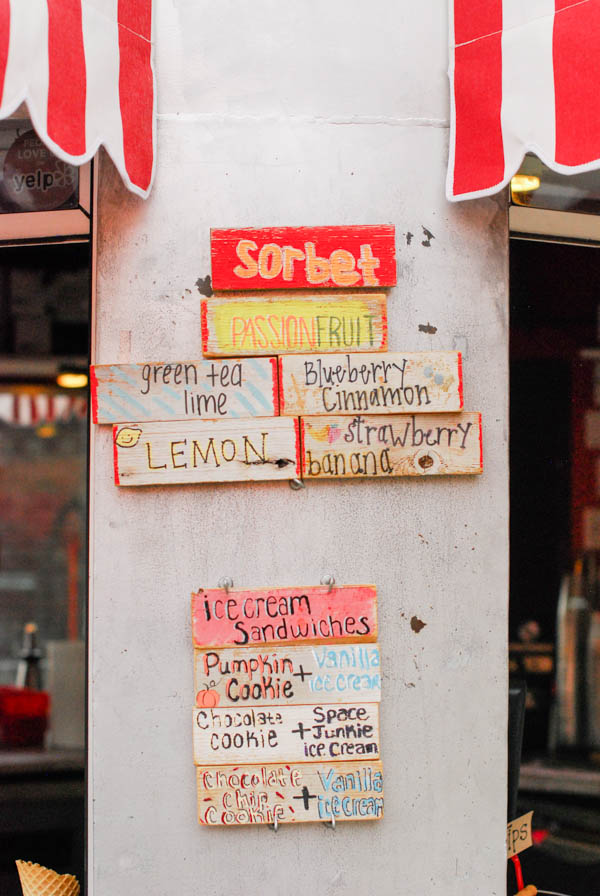 PEOPLE
LOVE
yelp
sorbet
PASSIONFRUIT
green tea
lime
Blueberry
Cinnamon
LEMON
strawberry
banana
ice cream
Sandwiches
Pumpkin
Cookie
+
Vanilla
ice cream
Chocolate
cookie
+
Space
Junkie
ice cream
chocolate
chip
cookie
+
Vanilla
icecream